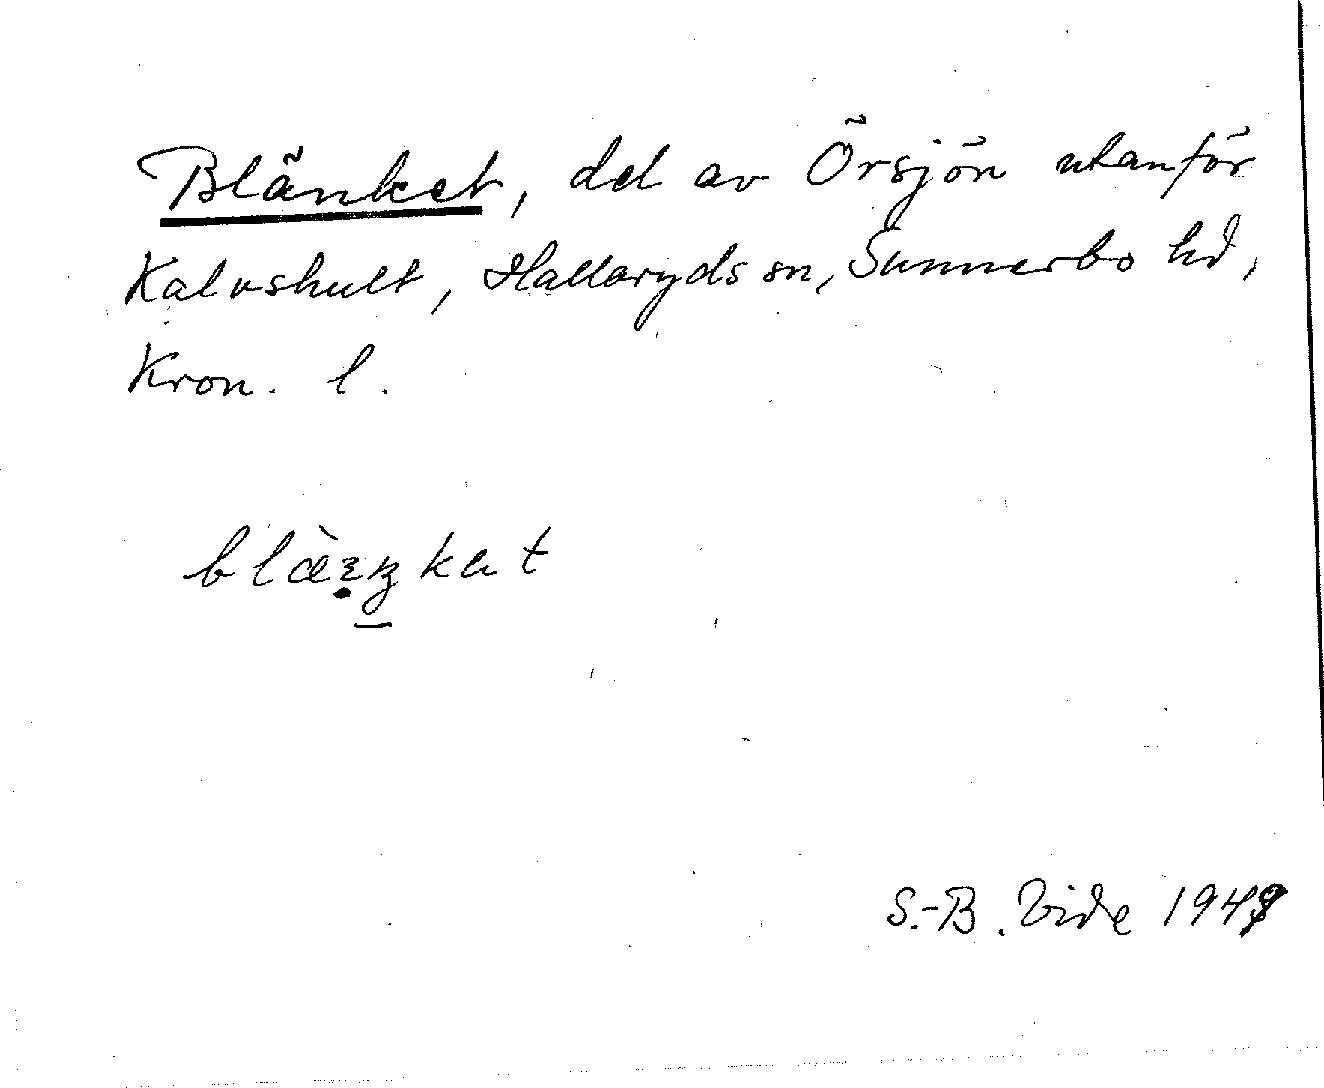 Blänket, del av Örsjön utanför
Kalvshult, Hallaryds sn, Sunnerbo hd,
Kron. l.
S.-B. Vide 1949